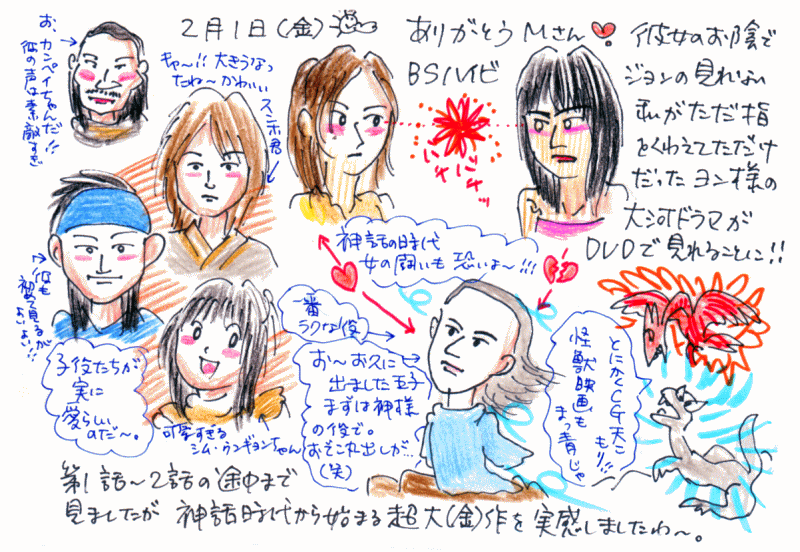 2月1日(金)
ありがとうMさん
BSハイビ
彼女のお陰で
ジョンの見れない
私がただ指
をくわえてただけ
だったヨン様の
大河ドラマが
DVDで見れることに!!
お、カンペイちゃんだ!!
彼の声は素敵すぎ
キャー!!大きうなっ
たね〜かわいい
スンホ君
バチバチッ
神話の時代
女の闘いも恐いよ〜!!!
彼も
初めて見るが
よいよい!!
子役たちが
実に
愛らしい
のだ〜。
可愛すぎる
シム・ウンギョンちゃん
一番
ラクな役
お〜お久に
出ました王子
まずは神様
の役で。
おそれ出しが…
(笑)
とにかくCG天こ
もり!!
怪獣映画も
まっ青じゃ
第1話〜2話の途中まで
見ましたが 神話時代から始まる超大(金)作を実感しましたわ〜。